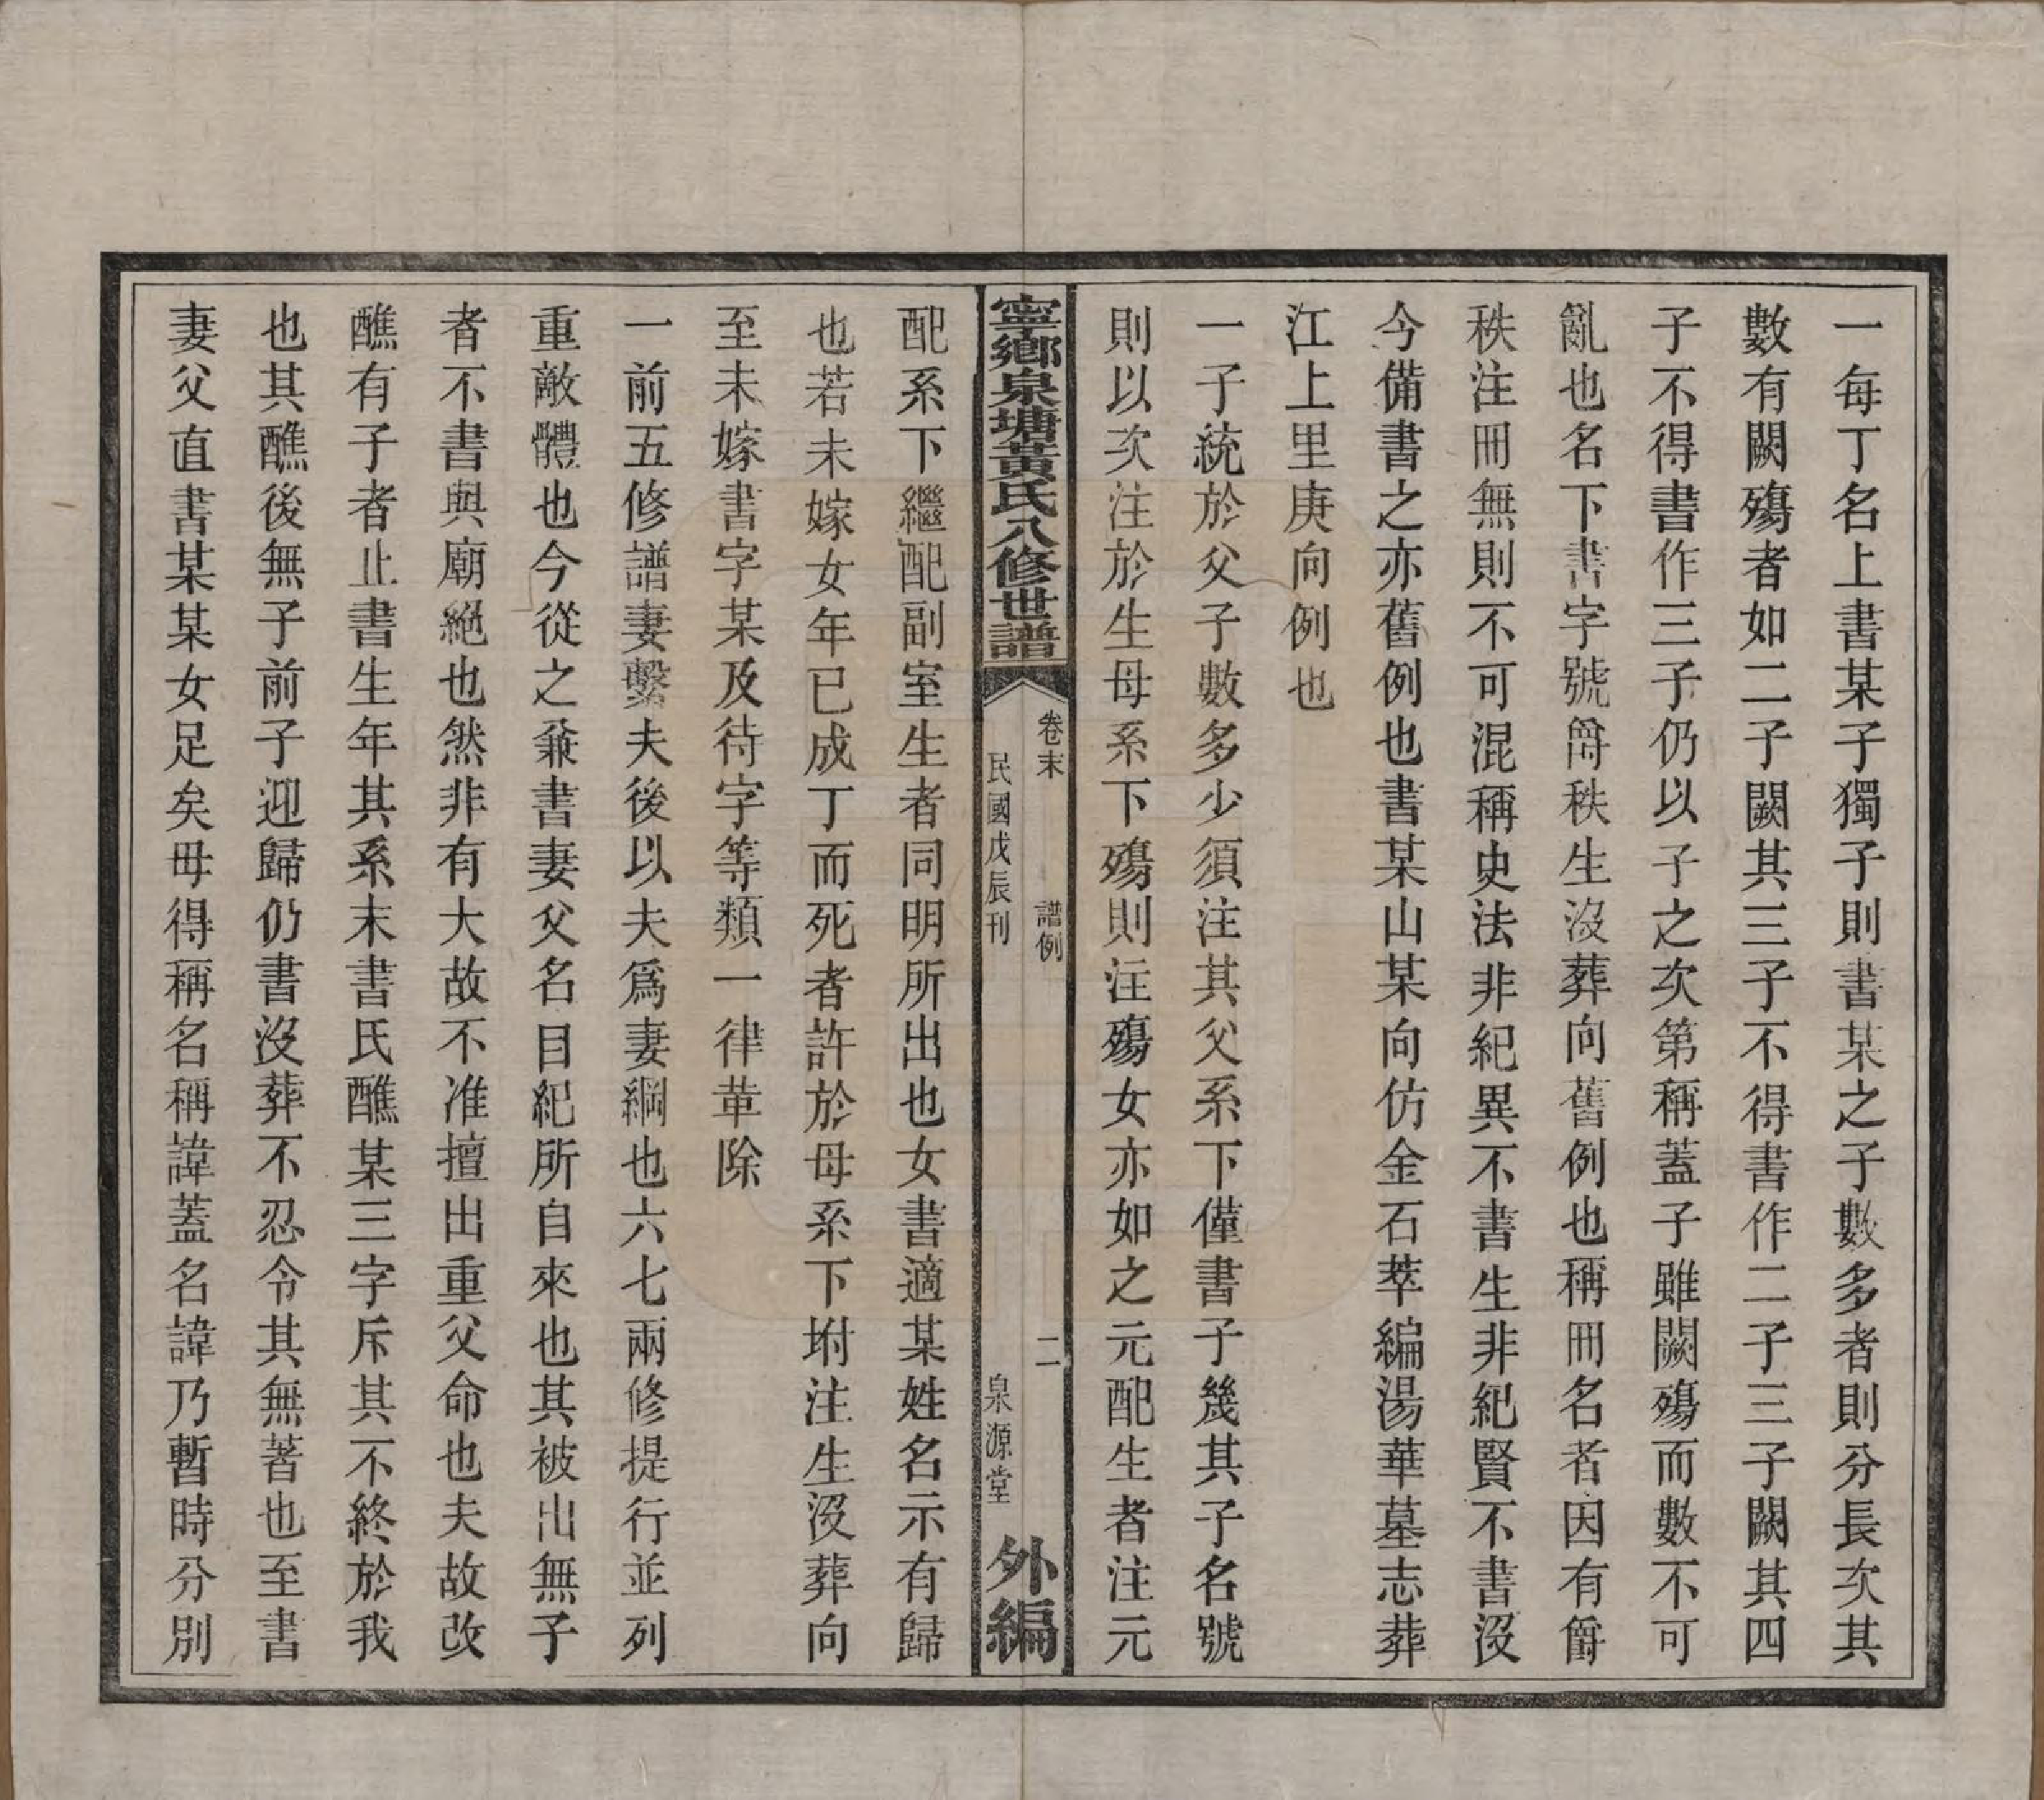 一每丁名上書某子獨子則書某之子數多者則分長次其
數有闕殤者如二子闕其三子不得書作二子三子闕其四
子不得書作三子仍以子之次第稱蓋子雖闕殤而數不可
亂也名下書字號爵秩生沒葬向舊例也稱冊名者因有爵
秩注冊無則不可混稱史法非紀異不書生非紀賢不書沒
今備書之亦舊例也書某山某向仿金石萃編湯華墓志葬
江上里庚向例也
一子統於父子數多少須注其父系下僅書子幾其子名號
則以次注於生母系下殤則注殤女亦如之元配生者注元
寧鄉泉塘黃氏八修世譜
卷末
譜例
二
民國戊辰刊
泉源堂
外編
配系下繼配副室生者同明所出也女書適某姓名示有歸
也若未嫁女年已成丁而死者許於母系下坿注生沒葬向
至未嫁書字某及待字等類一律革除
一前五修譜妻繫夫後以夫爲妻綱也六七兩修提行並列
重敵體也今從之兼書妻父名目紀所自來也其被出無子
者不書與廟絕也然非有大故不准擅出重父命也夫故改
醮有子者止書生年其系末書氏醮某三字斥其不終於我
也其醮後無子前子迎歸仍書沒葬不忍令其無著也至書
妻父直書某某女足矣毋得稱名稱諱蓋名諱乃暫時分別